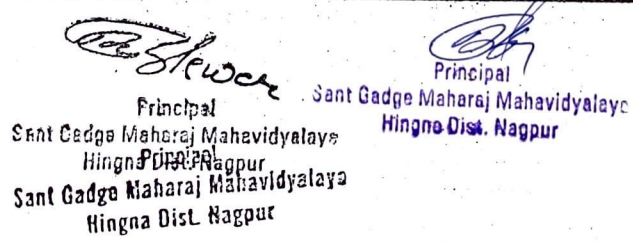 Principal
Sant Gadge Maharaj Mahavidyalaya
Hingna Dist. Nagpur
Principal
Sant Gadge Maharaj Mahavidyalaya
Hingna Dist. Nagpur
Principal
Sant Gadge Maharaj Mahavidyalaya
Hingna Dist. Nagpur